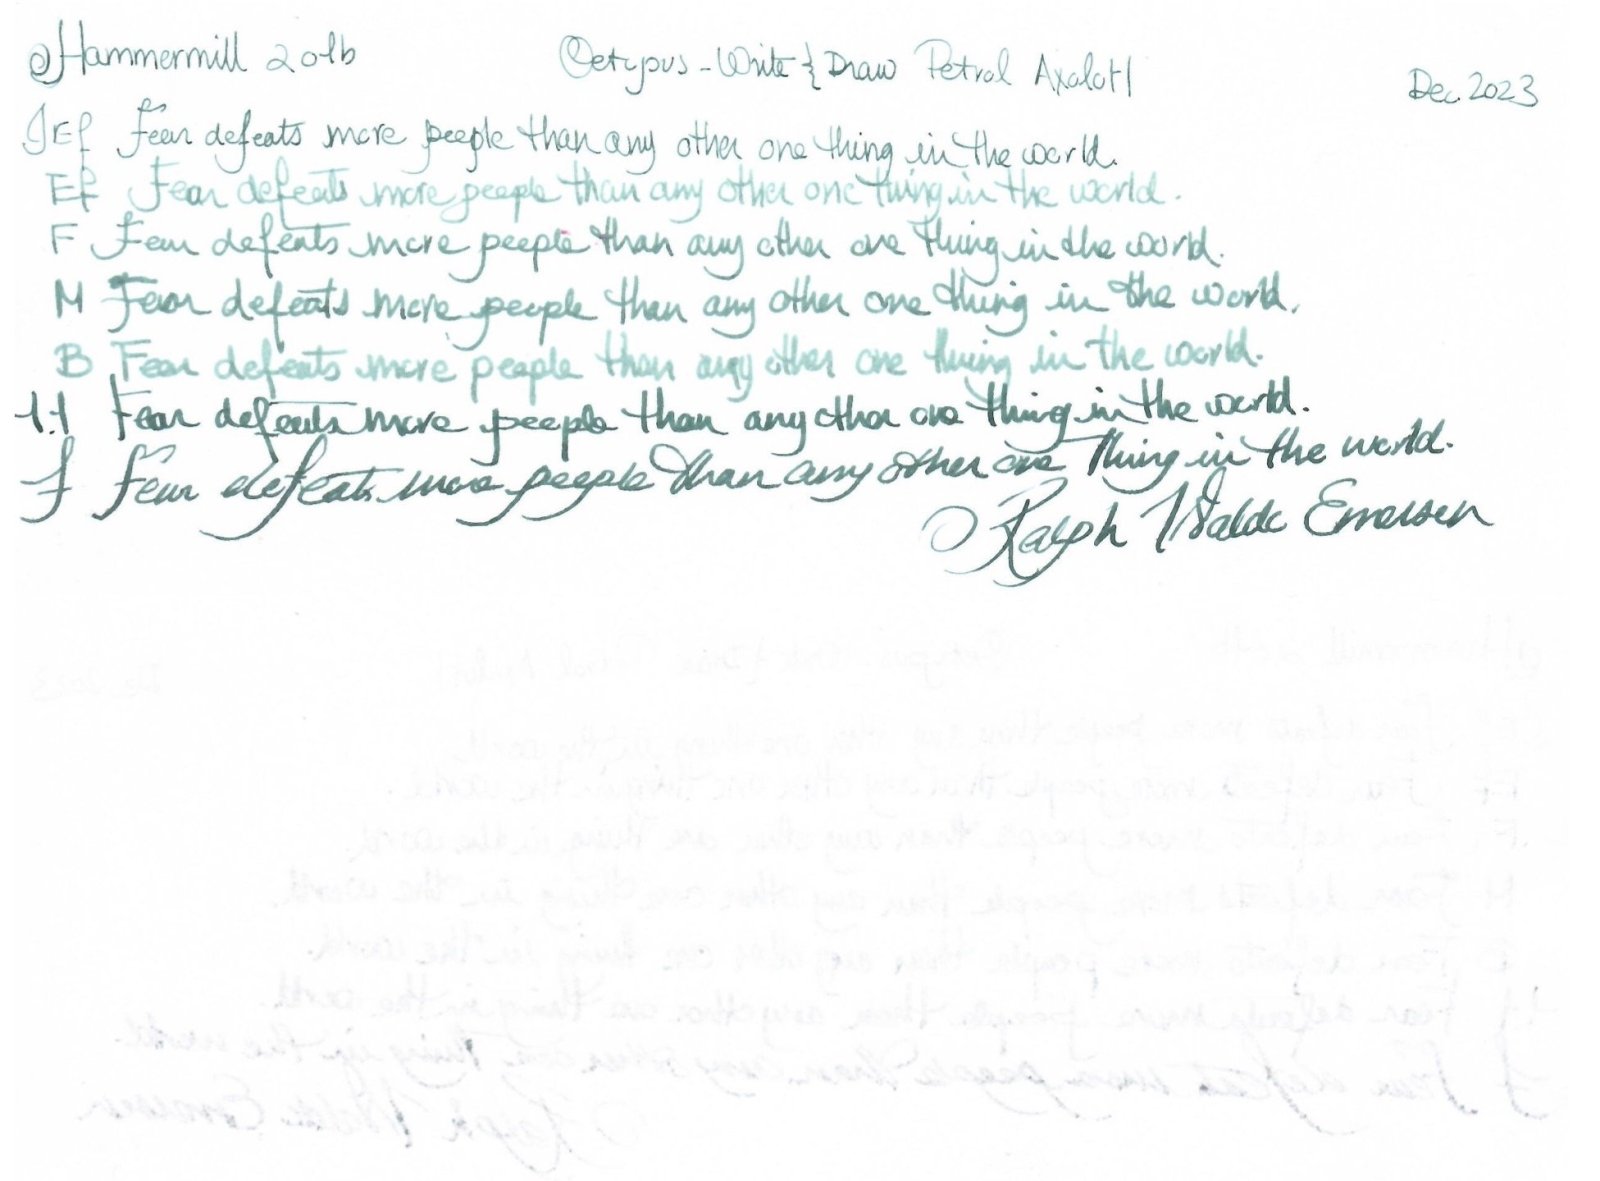 @Hammermill 20lb Octopus-Write & Draw Petrol Axalotl Dec 2023
JEf Fear defeats more people than any other one thing in the world.
Ef Fear defeats more people than any other one thing in the world.
F Fear defeats more people than any other one thing in the world.
M Fear defeats more people than any other one thing in the world.
B Fear defeats more people than any other one thing in the world.
1.1 Fear defeats more people than any other one thing in the world.
f Fear defeats more people than any other one thing in the world.
Ralph Waldo Emerson